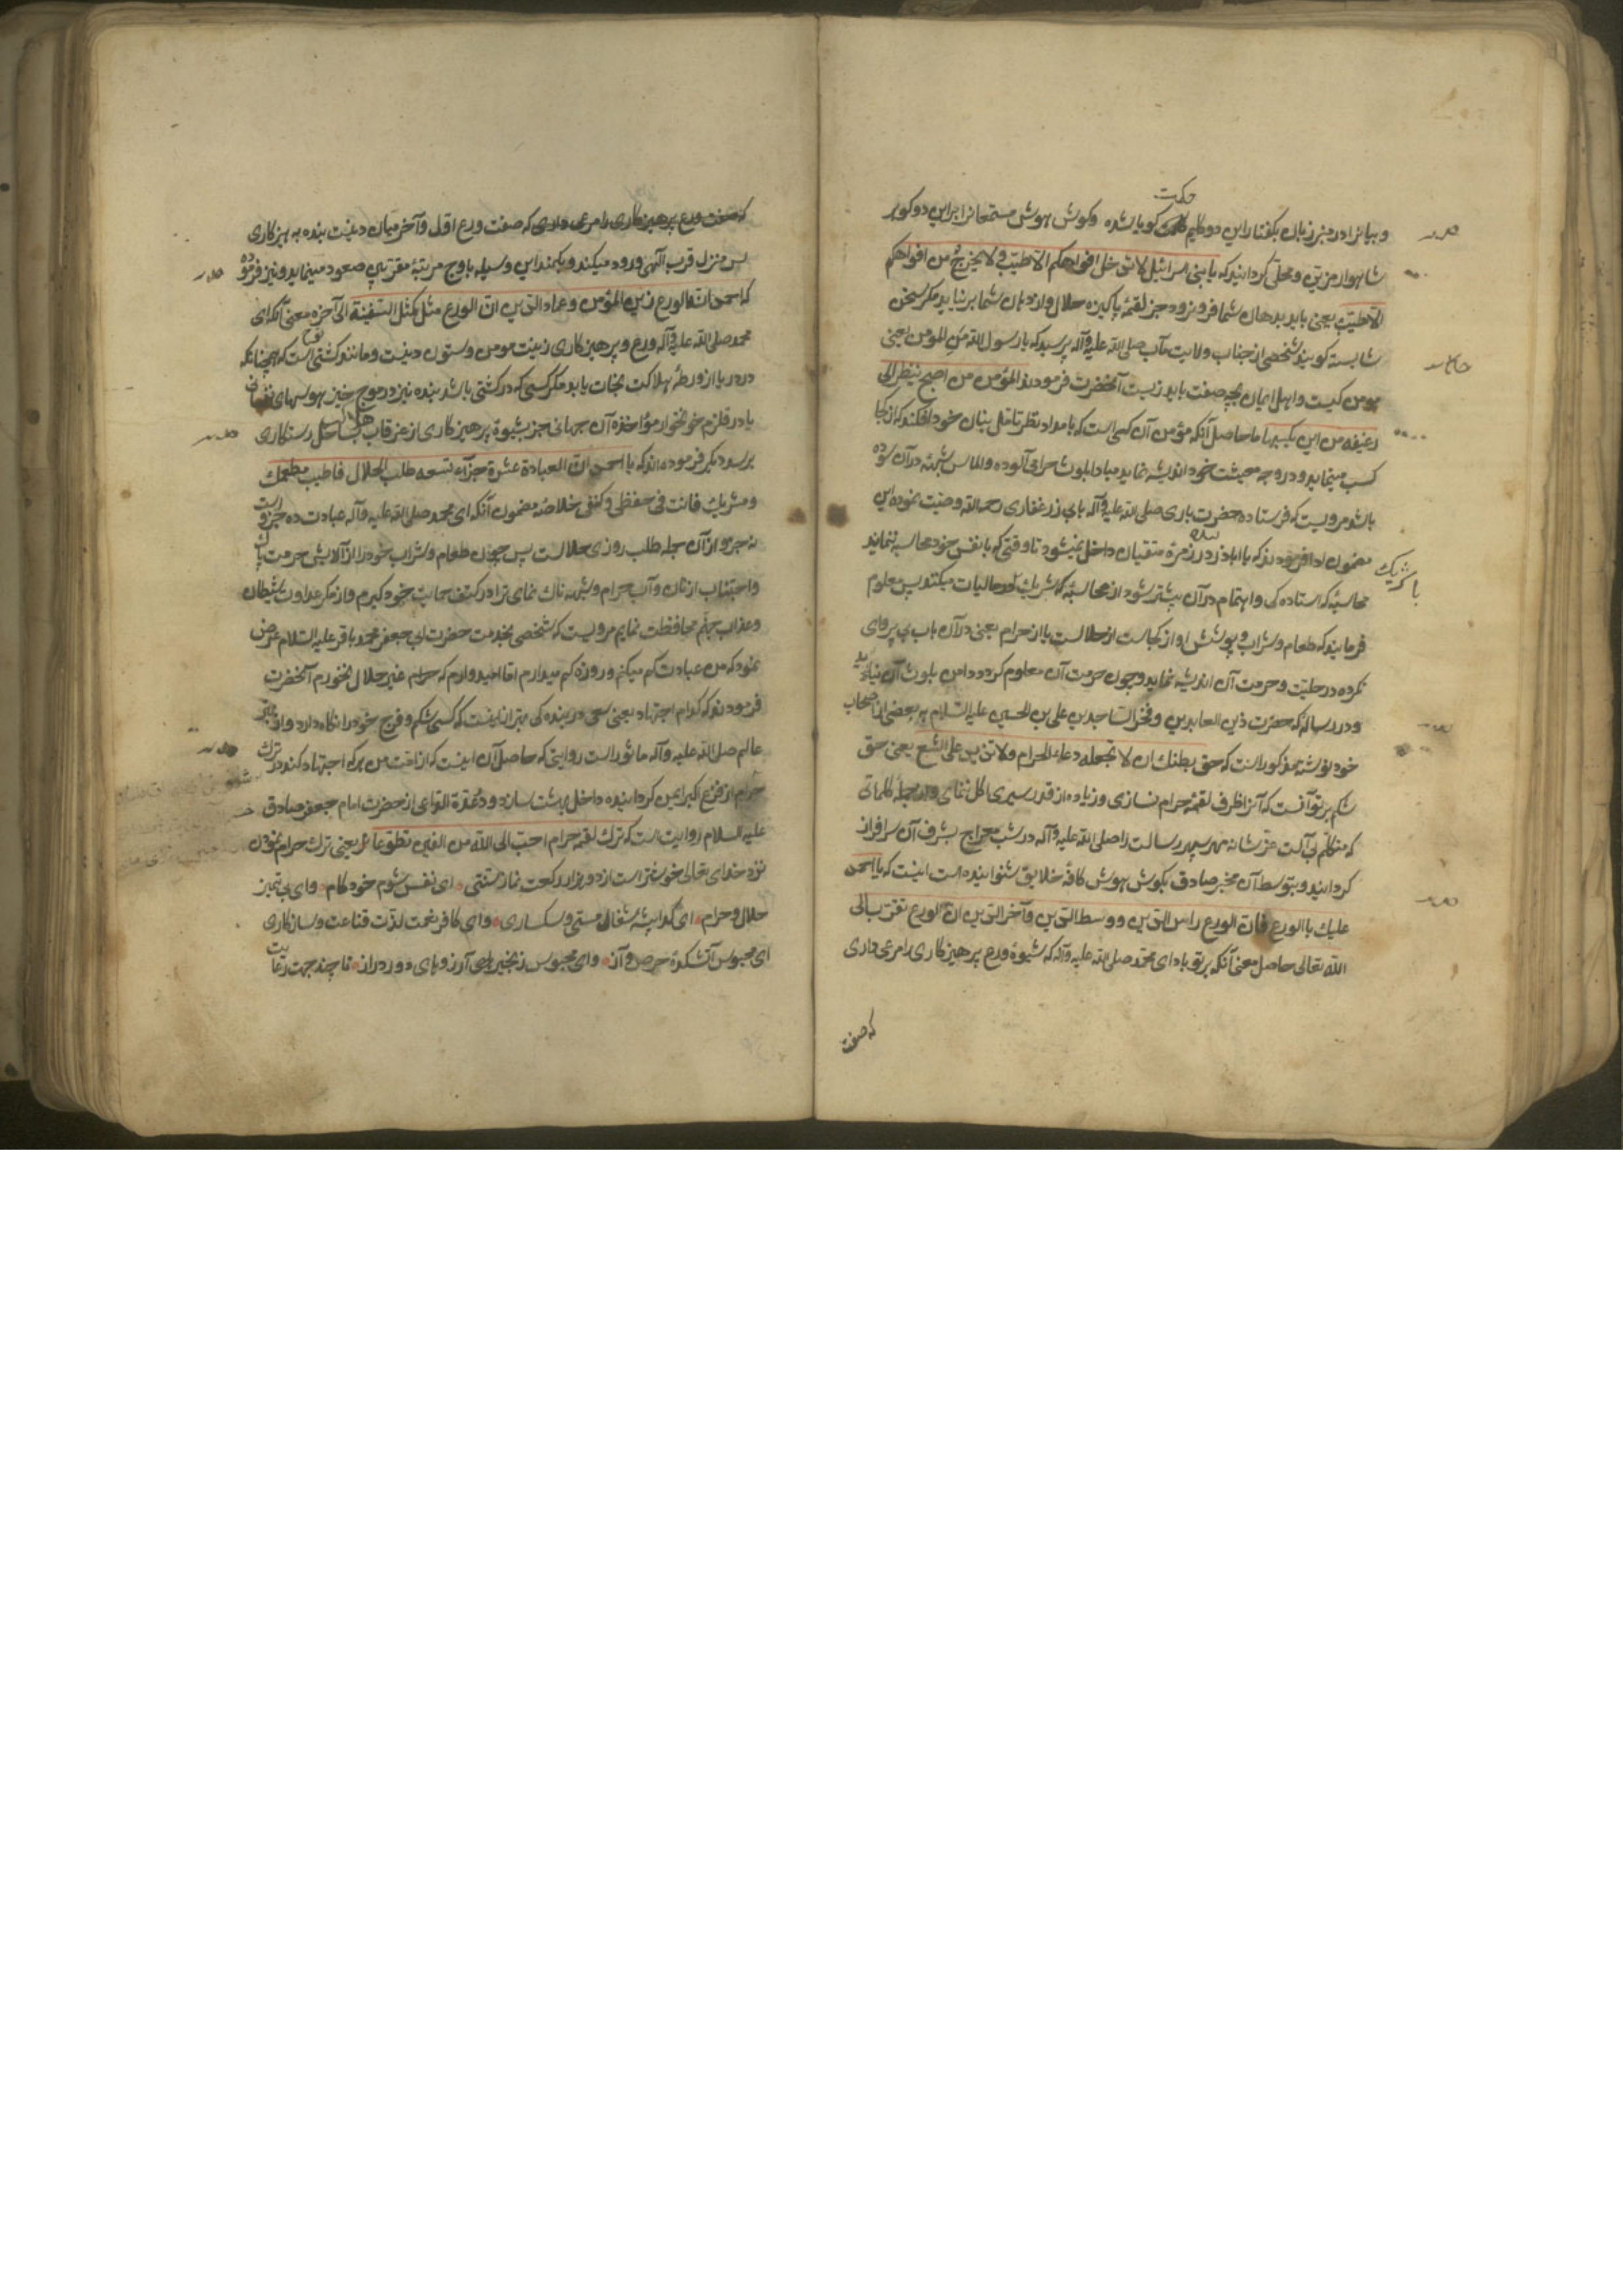 حکمت
و بیانرا در منبر زبان بکفتار این دو کلیم کویا شده و کوش هوش مستمعانرا براین دو کوهر
شاهوار مزین و محلّی کردانید که یا بنی اسرائیل لا تدخل افواهکم الا طیّب ولا یخرج من افواهکم
الا طیّب یعنی باید بدهان شما فرو نرود جز لقمهٔ پاکیزه حلال و از دهان شما بر نیاید مکر سخن
شایسته کویند شخصی از جناب ولایت مآب صلی الله علیه وآله پرسید که یا رسول الله من المؤمن یعنی
مومن کیست و اهل ایمان بچه صفت باید زیست آنحضرت فرمودند المؤمن من اصبح ینظر الی
رغیفه من این یکسبها ما حاصل آنکه مؤمن آن کسی است که بامداد نظر تامل بنان خود افکند که از کجا
کسب مینماید و در وجه معیشت خود اندیشه نماید مبادا بلوث حرامی آلوده و الماس شبهه در آن سوده
باشد مرویست که فرستاده حضرت باری صلی الله علیه وآله بابی ذر غفاری رحمه الله وصیت نموده این
مضمون ادا فرمودند که یا اباذر در زمرهٔ متقیان داخل نمیشود تا وقتی که با نفس خود محاسبه ننماید
با شریک
محاسبهٔ که استاده کی و اهتمام در آن بیشتر شود از محاسبهٔ که شریک در مالیات میکند پس معلوم
فرمایند که طعام و شراب و پوشش او از کجاست از حلالست یا از حرام یعنی در آن باب بی پروای
نکرده در حلیّت و حرمت آن اندیشه نماید و چون حرمت آن معلوم کردد دامن بلوث آن نیالاید
و در رساله که حضرت زین العابدین و فخر الساجدین علی بن الحسین علیه السلام به بعضی از اصحاب
خود نوشته مذکور است که حق بطنك ان لا تجعله دعاء للحرام ولا تزید علی الشبع یعنی حق
شکم بر تو آنست که آنرا ظرف لقمهٔ حرام نسازی و زیاده از قدر سیری اکل ننمای و از جملهٔ کلماتی
که متکلّم بی آلت عزّ شانه مهر سپهر رسالت را صلی الله علیه وآله در شب معراج بشرف آن سرافراز
کردانید و بتوسط آن مخبر صادق بکوش هوش کافهٔ خلایق شنوانیده است اینست که یا احمد
علیك بالورع فان الورع راس الدین و وسط الدین و آخر الدین ان الورع تقرّب الی
الله تعالی حاصل معنی آنکه بر تو باد ای محمد صلی الله علیه وآله که شیوهٔ ورع پرهیزکاری را مرعی داری
که صفت
که صفت ورع پرهیزکاری را مرعی داری که صفت ورع اول و آخر میان دینست بنده به پرهیزکاری
بسر منزل قرب الهی ورود میکند و بکمند این وسیله باوج مرتبهٔ مقرّبی صعود مینماید و نیز فرموده
که احمد ان الورع زین المؤمن و عماد الدین ان الورع مثل کمثل السفینة الی آخره معنی آنکه ای
محمد صلی الله علیه وآله ورع و پرهیزکاری زینت مومن و ستون دینست و مانند کشتی است که همچنانکه
در دریا از ورطهٔ هلاکت نجات یابد مکر کسی که در کشتی باشد بنده نیز در موج خیز هوسهای نفسانی
یا در قلزم خونخوار مؤاخذه آن جهانی جز بشیوهٔ پرهیزکاری از غرقاب بساحل رستکاری
برسد دیکر فرموده اند که یا احمد ان العبادة عشرة جزآء تسعه طلب الحلال فاطیب مطعمك
و مشربك فانت فی حفظی و کنفی خلاصهٔ مضمون آنکه ای محمد صلی الله علیه وآله عبادت ده جزو است
نه جزو از آن جمله طلب روزی حلالست پس چون طعام و شراب خود را از آلایش حرمت پاک
و اجتناب از نان و آب حرام و شبهه ناک نمای ترا در کنف حمایت خود کیرم و از مکر عداوت شیطان
و عذاب جهنم محافظت نمایم مرویست که شخصی بخدمت حضرت ابی جعفر محمد باقر علیه السلام عرض
نمود که من عبادت کم میکنم و روزه کم میدارم اما امیدوارم که حرام غیر حلال نخورم آنحضرت
فرمودند که کدام اجتهاد یعنی سعی در بنده کی بهتر از اینست که کسی شکم و فرج خود را نکاه دارد و از
عالم صلی الله علیه وآله ماثور است روایتی که حاصل آن اینست که از امت من هر که اجتهاد کند در ترک
حرام از فزع اکبر ایمن کردانیده داخل بهشت سازد و در عدّة الداعی از حضرت امام جعفر صادق
علیه السلام روایت است که ترك لقمه حرام احبّ الی الله من الفین تطوّعا یعنی ترک حرام نمودن
نزد خدای تعالی خوشتر است از دو هزار رکعت نماز سنتی ای نفس شوم خودکام وای بی تمیز
حلال و حرام ای کدا پیشه شغال مستی و سکساری وای کافر نعمت لذت قناعت و سازکاری
ای محبوس آتشکدهٔ حرص و آز وای محبوس زنجیر آرزوهای دور دراز تا چند جهت رعایت